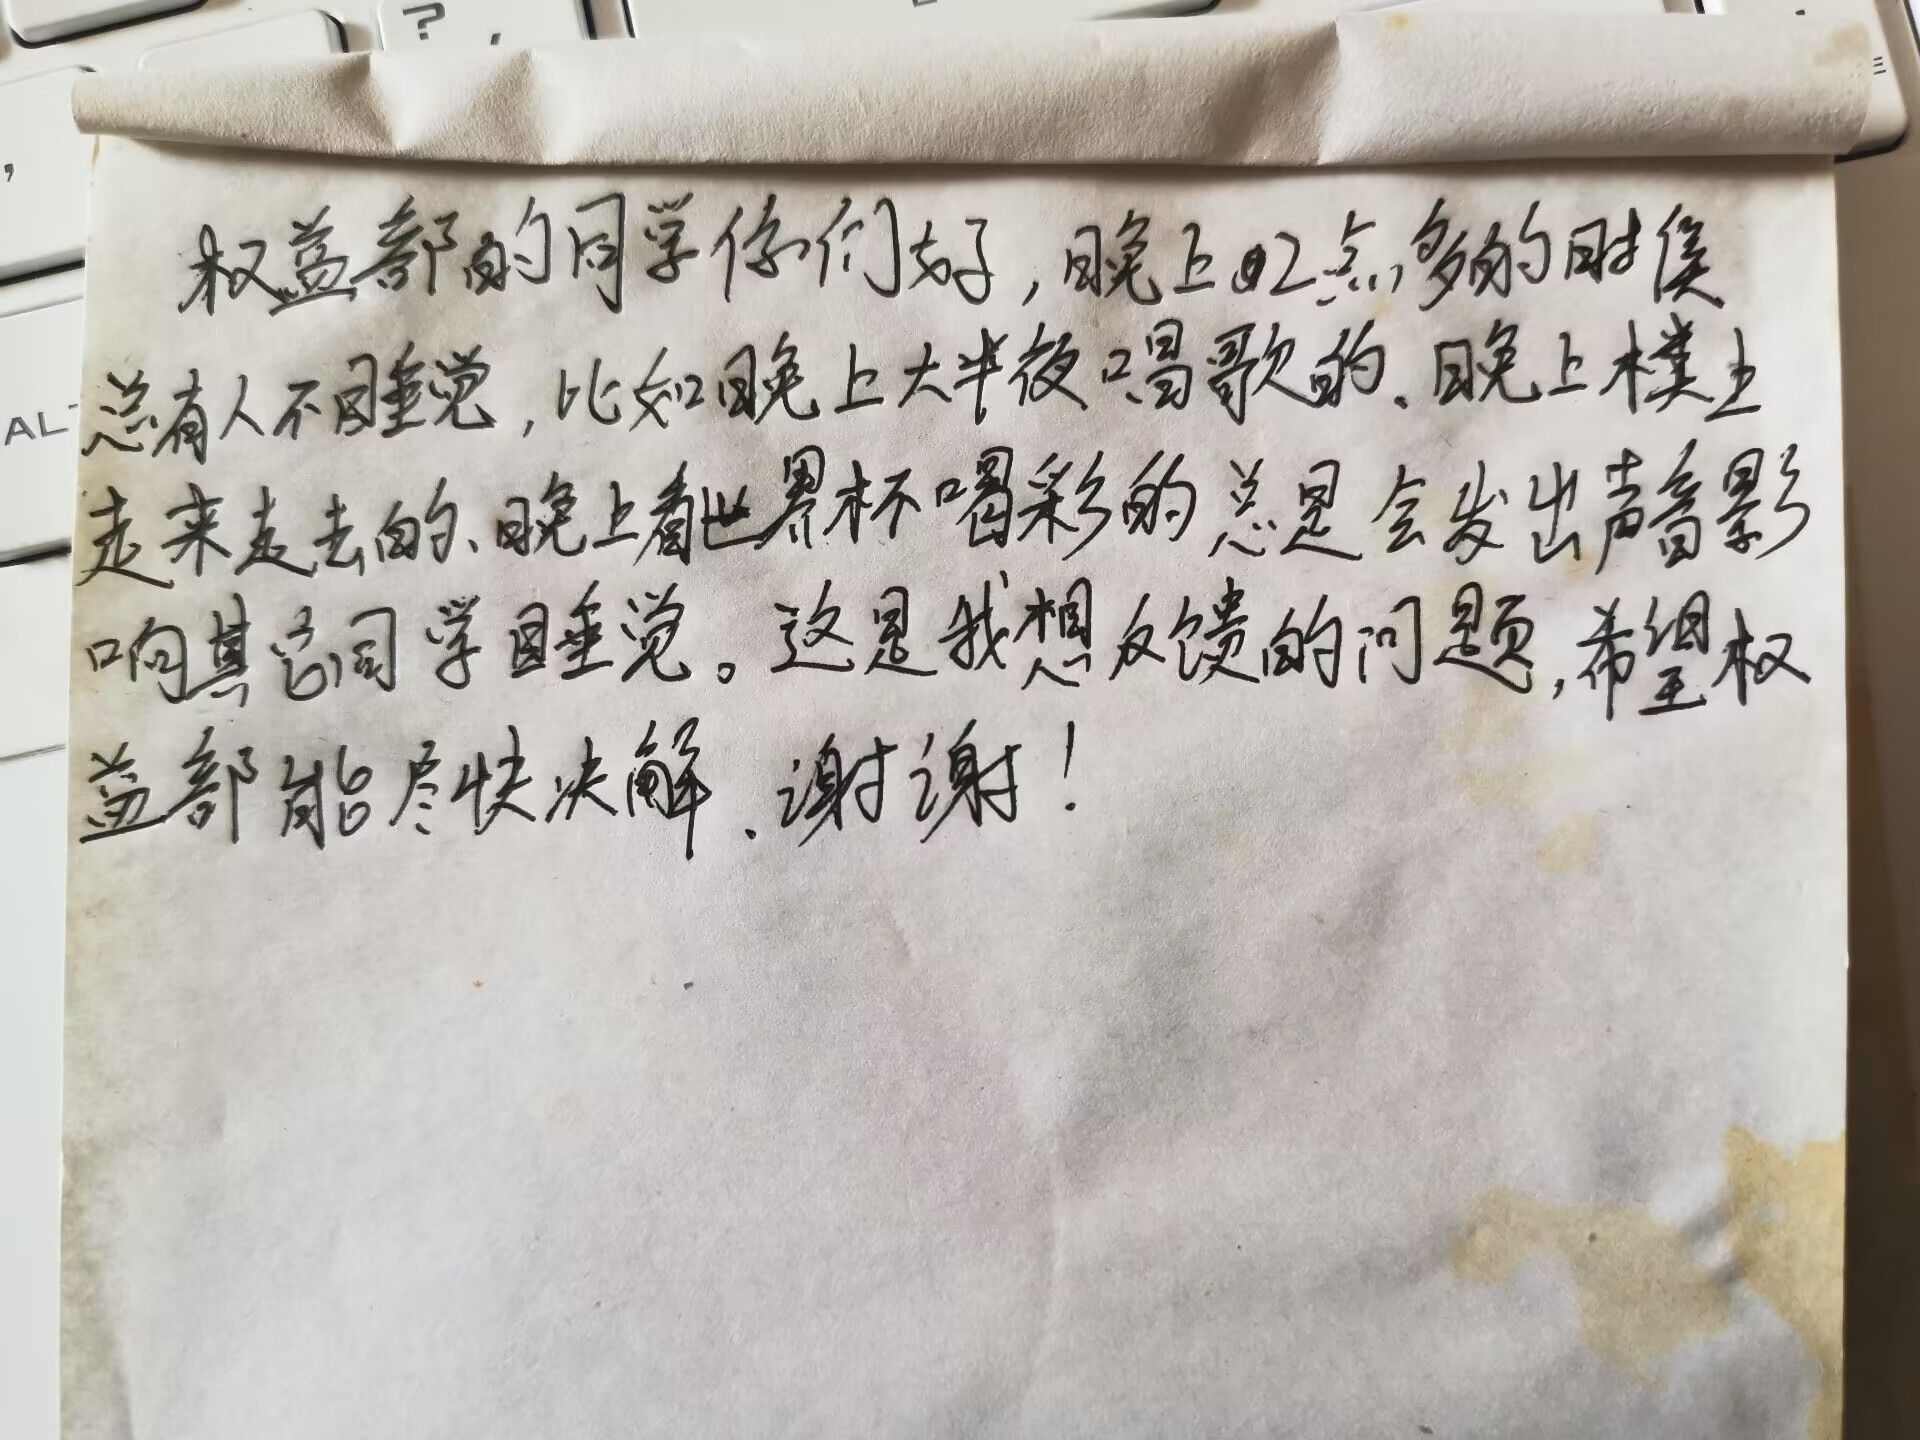 ?
,
,
ALT
权益部的同学你们好，晚上12点多的时候
总有人不睡觉，比如晚上大半夜唱歌的、晚上楼上
走来走去的、晚上看世界杯喝彩的总是会发出声音影
响其它同学睡觉。这是我想反馈的问题，希望权
益部能尽快决解、谢谢！